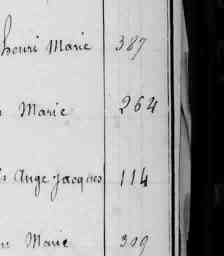 houri Marie 387
Marie 264
Ange Jacques 114
Marie 309